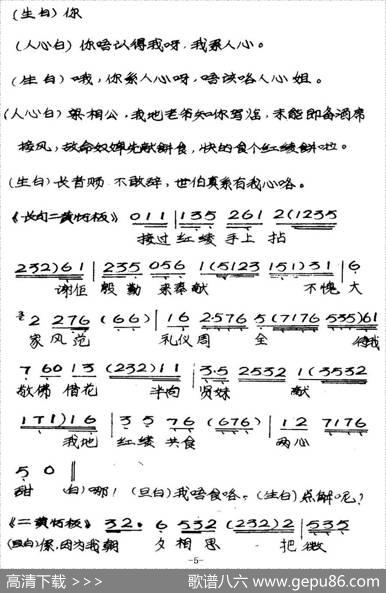 （生白）你
（人心白）你唔认得我呀，我系人心。
（生白）哦，你系人心呀，唔该咯人心姐。
（人心白）梁相公，我地老爷知你驾临，未能即备酒席
接风，故命奴婢先献饼食，快的食个红绫饼啦。
（生白）长者赐 不敢辞，世伯真系有我心咯。
《长句二黄慢板》 0 1 1 | 1 3 5 2 6 1 2 (1 2 3 5
接过 红绫 手上 拈
2 3 2) 6 1 | 2 3 5 0 5 6 1 (5 1 2 3 1 5 1) 3 1 | 6
谢佢 殷 勤 来奉献 不愧 大
2 2 7 6 (6 6) | 1 6 2·5 7 6 5 (7 1 7 6 5 3 5) 6 1
家 风 范 礼仪 周 全
7 6 0 1 3 (2 3 2) 1 1 | 3·5 2 5 3 2 1 (3 5 3 2
敬佛 借花 半向 贤妹 献
1 7 1) 1 6 | 3 5 7 6 (6 7 6) | 1 2 7 1 7 6
我地 红绫 共食 两心
5 0 ‖
甜 白）哪！（旦白）我唔食咯。（生白）点解呢？
《二黄慢板》 3 2· 6 5 3 2 (2 3 2) 2 | 5 3 5
（旦白）系，因为我朝 夕 相 思 把 微
-5-
高清下载 >>> 歌谱八六 www.gepu86.com